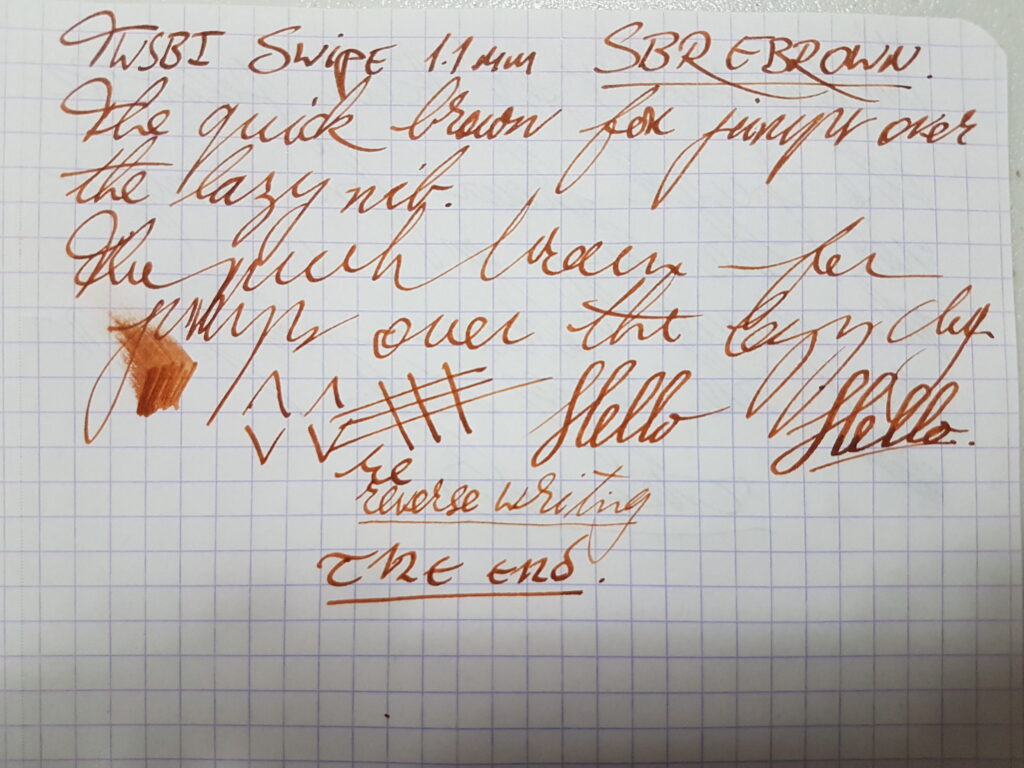 TWSBI Swipe 1.1 mm SBREBROWN.
The quick brown fox jumps over
the lazy nib.
The quick brown fox
jumps over the lazy dog.
Hello Hello.
re
reverse writing
The End.